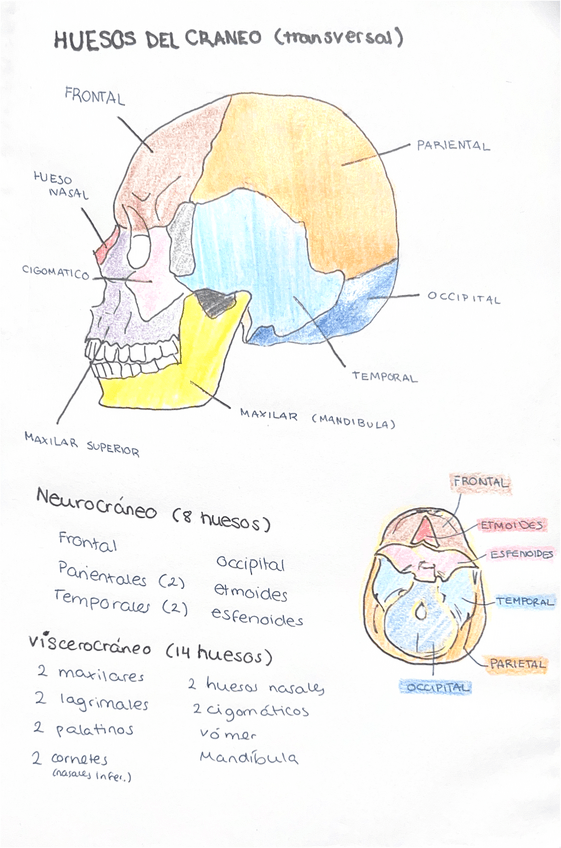 HUESOS DEL CRANEO (transversal)
FRONTAL
PARIENTAL
HUESO
NASAL
CIGOMATICO
OCCIPITAL
TEMPORAL
MAXILAR (MANDIBULA)
MAXILAR SUPERIOR
Neurocráneo (8 huesos)
Frontal
Parientales (2)
Temporales (2)
occipital
etmoides
esfenoides
viscerocráneo (14 huesos)
2 maxilares
2 lagrimales
2 palatinos
2 cornetes
(nasales infer.)
2 huesos nasales
2 cigomáticos
vómer
Mandíbula
FRONTAL
ETMOIDES
ESFENOIDES
TEMPORAL
PARIETAL
OCCIPITAL